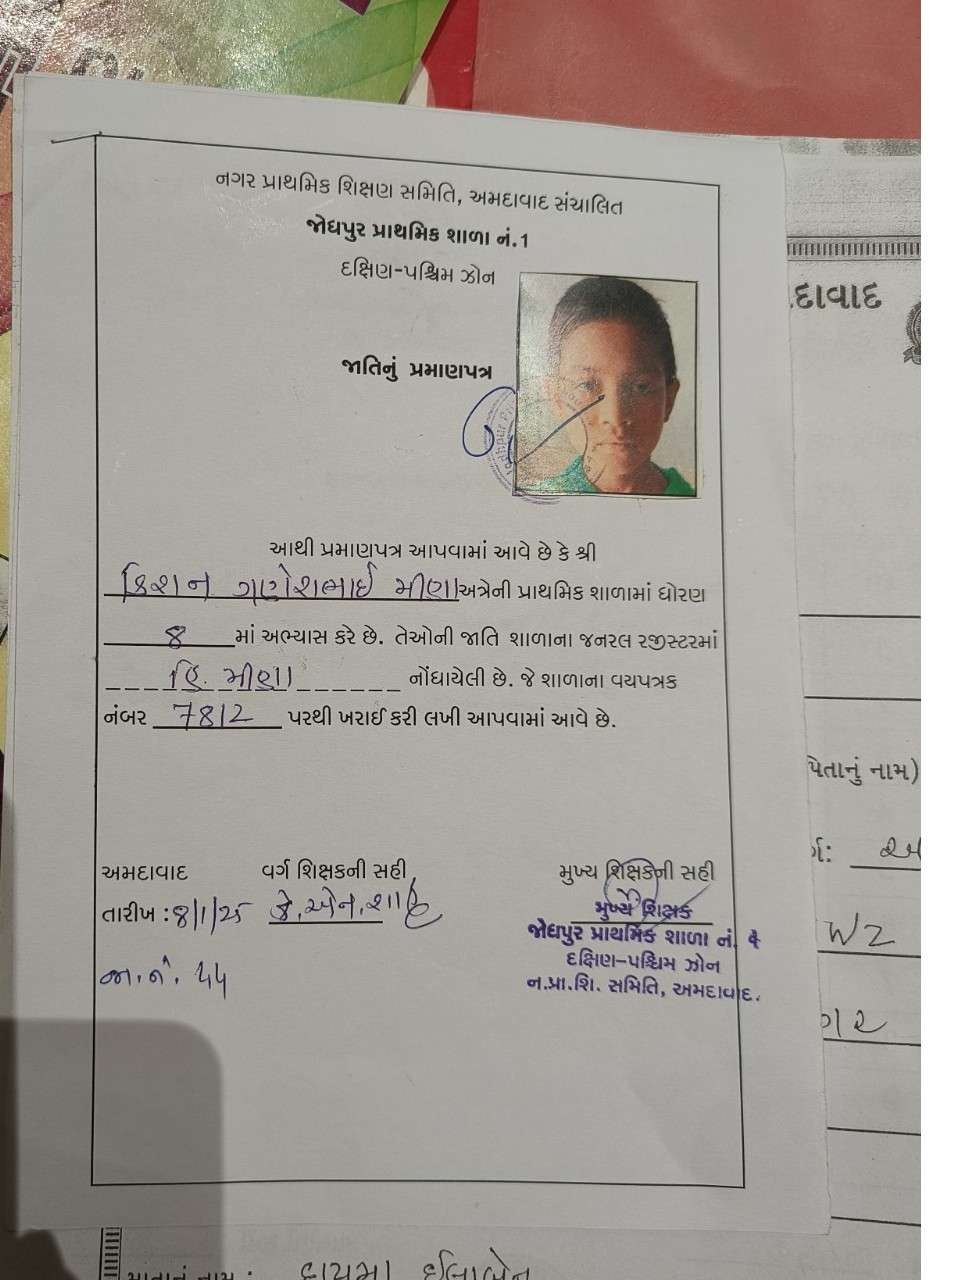 નગર પ્રાથમિક શિક્ષણ સમિતિ, અમદાવાદ સંચાલિત
જોધપુર પ્રાથમિક શાળા નં.1
દક્ષિણ-પશ્ચિમ ઝોન
જાતિનું પ્રમાણપત્ર
આથી પ્રમાણપત્ર આપવામાં આવે છે કે શ્રી
કિશન ગણેશભાઈ મીણા અત્રેની પ્રાથમિક શાળામાં ધોરણ
8 માં અભ્યાસ કરે છે. તેઓની જાતિ શાળાના જનરલ રજીસ્ટરમાં
હિ. મીણા નોંધાયેલી છે. જે શાળાના વયપત્રક
નંબર 7812 પરથી ખરાઈ કરી લખી આપવામાં આવે છે.
અમદાવાદ વર્ગ શિક્ષકની સહી મુખ્ય શિક્ષકની સહી
તારીખ : 8/1/25 કે. એન. શાહ
જા. નં. ૫૫
મુખ્ય શિક્ષક
જોધપુર પ્રાથમિક શાળા નં. ૧
દક્ષિણ-પશ્ચિમ ઝોન
ન.પ્રા.શિ. સમિતિ, અમદાવાદ.
દાવાદ
પિતાનું નામ)
W2
માતાનું નામ : દાયમા ઈલાબેન